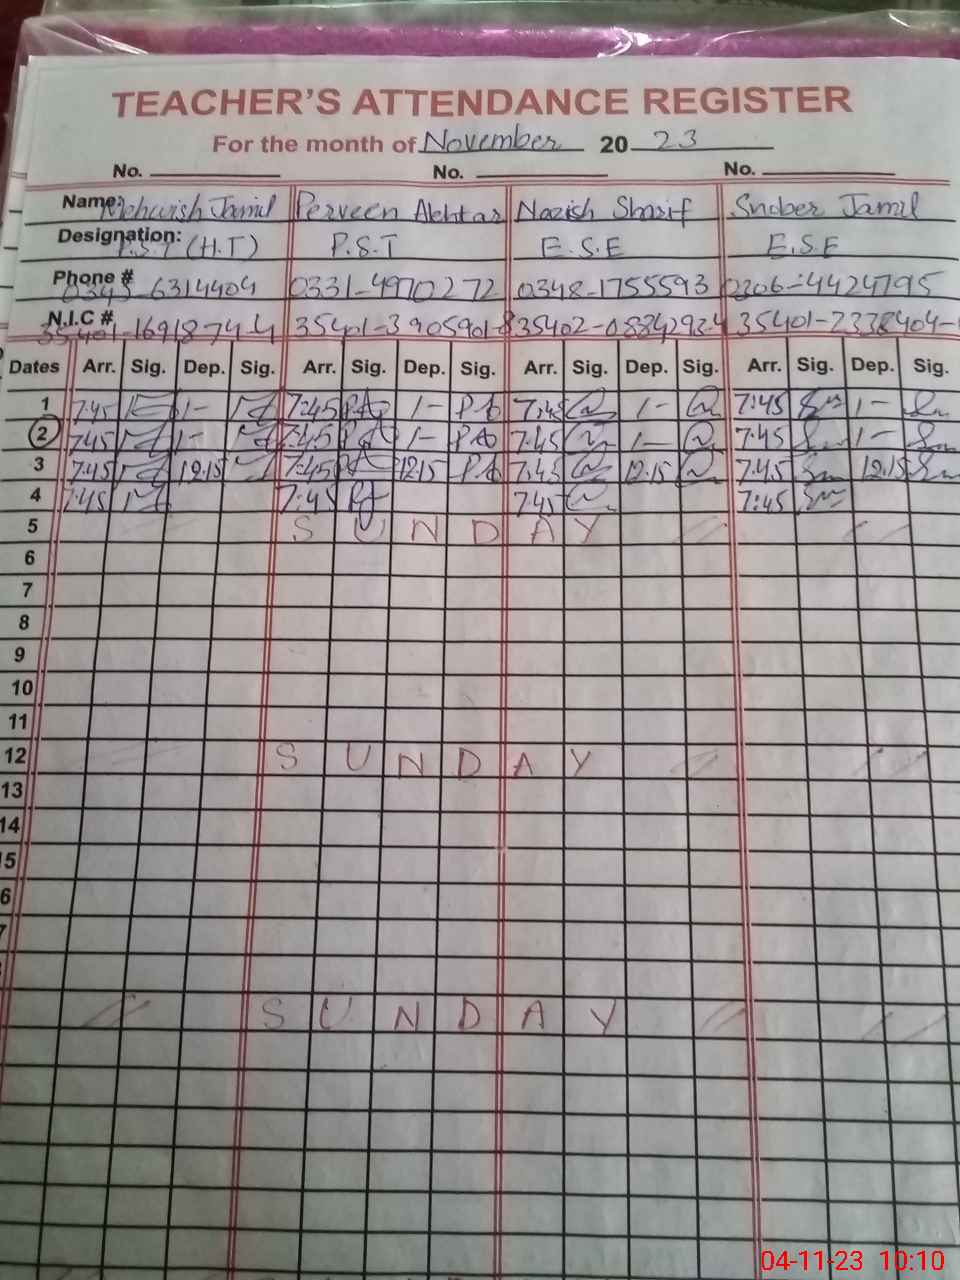 TEACHER'S ATTENDANCE REGISTER
For the month of November 20 23
No. No. No.
Name: Mehwish Jamil Perveen Akhtar Nazish Sharif Snober Jamil
Designation: P.S.T (H.T) P.S.T E.S.E E.S.E
Phone # 0345-6314404 0331-4970272 0348-1755593 0306-4424795
N.I.C # 35401-1691874-4 35401-3905901-8 35402-0884293-4 35401-2338404-
Dates Arr. Sig. Dep. Sig. Arr. Sig. Dep. Sig. Arr. Sig. Dep. Sig. Arr. Sig. Dep. Sig.
1 7:45 1- 7:45 PA 1- PA 7:45 1- 7:45 1-
2 7:45 1- 7:45 PA 1- PA 7:45 1- 7:45 1-
3 7:45 12:15 7:45 PA 12:15 PA 7:45 12:15 7:45 12:15
4 7:45 7:45 PA 7:45 7:45
5 SUNDAY
6
7
8
9
10
11
12 SUNDAY
13
14
15
6
7
SUNDAY
04-11-23 10:10